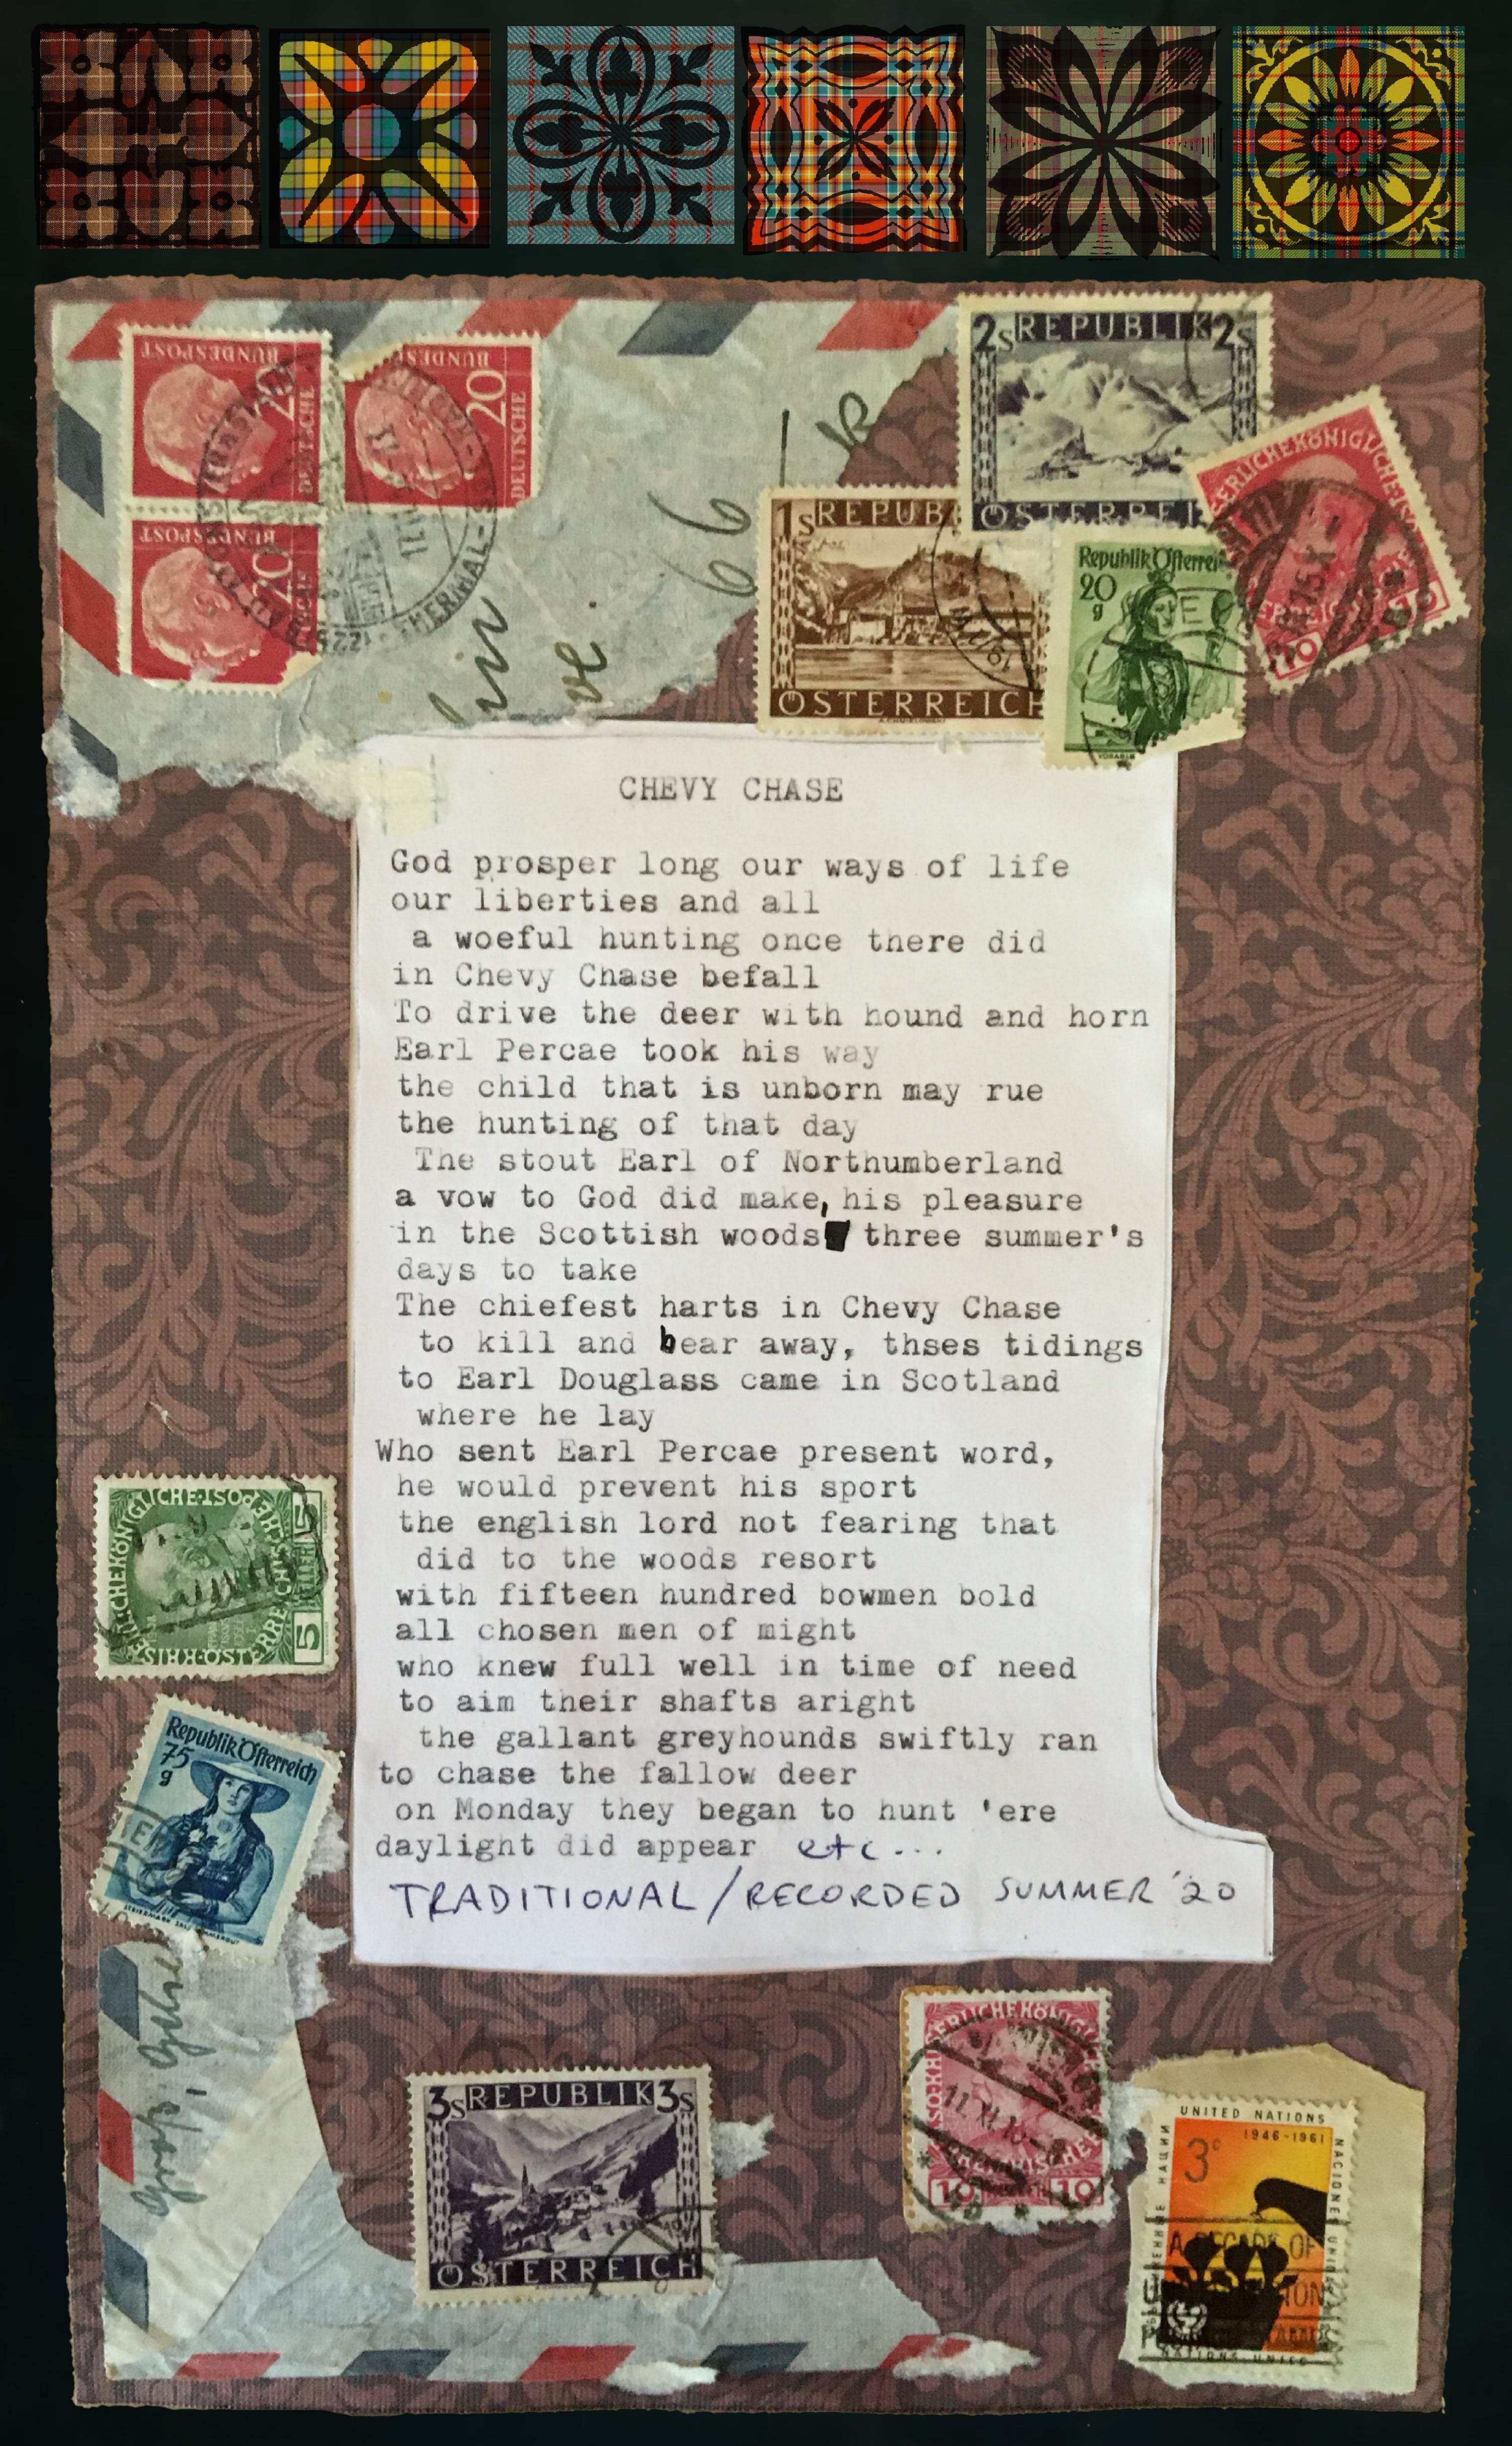 BUNDESPOST
20
DEUTSCHE
BUNDESPOST
20
DEUTSCHE
BUNDESPOST
20
66
2s REPUBLIK 2s
ÖSTERREI
1s REPUB
ÖSTERREICH
Republik Österrei
20
g
10
CHEVY CHASE
God prosper long our ways of life
our liberties and all
a woeful hunting once there did
in Chevy Chase befall
To drive the deer with hound and horn
Earl Percae took his way
the child that is unborn may rue
the hunting of that day
The stout Earl of Northumberland
a vow to God did make, his pleasure
in the Scottish woods three summer's
days to take
The chiefest harts in Chevy Chase
to kill and bear away, thses tidings
to Earl Douglass came in Scotland
where he lay
Who sent Earl Percae present word,
he would prevent his sport
the english lord not fearing that
did to the woods resort
with fifteen hundred bowmen bold
all chosen men of might
who knew full well in time of need
to aim their shafts aright
the gallant greyhounds swiftly ran
to chase the fallow deer
on Monday they began to hunt 'ere
daylight did appear etc...
TRADITIONAL/RECORDED SUMMER '20
5
5
Republik Österreich
75
g
3s REPUBLIK 3s
ÖSTERREICH
10 10
UNITED NATIONS
1946-1961
3c
A DECADE OF
NATIONS UNIES